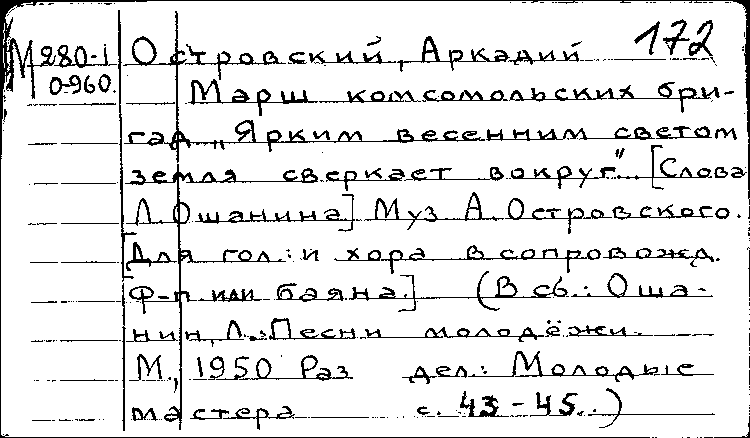 М 280-1 Островский, Аркадий 172
0-960.
Марш комсомольских бри-
гад „Ярким весенним светом
земля сверкает вокруг"... [Слова
Л. Ошанина] Муз А. Островского.
[Для гол.: и хора в сопровожд.
ф-п или баяна.] (В сб.: Оша-
нин, Л.: Песни молодёжи.
М., 1950 Раз дел.: Молодые
мастера с. 43-45..)